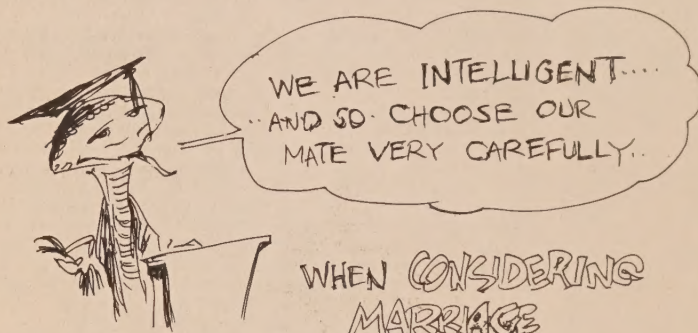 WE ARE INTELLIGENT....
..AND SO CHOOSE OUR
MATE VERY CAREFULLY..
WHEN CONSIDERING
MARRIAGE